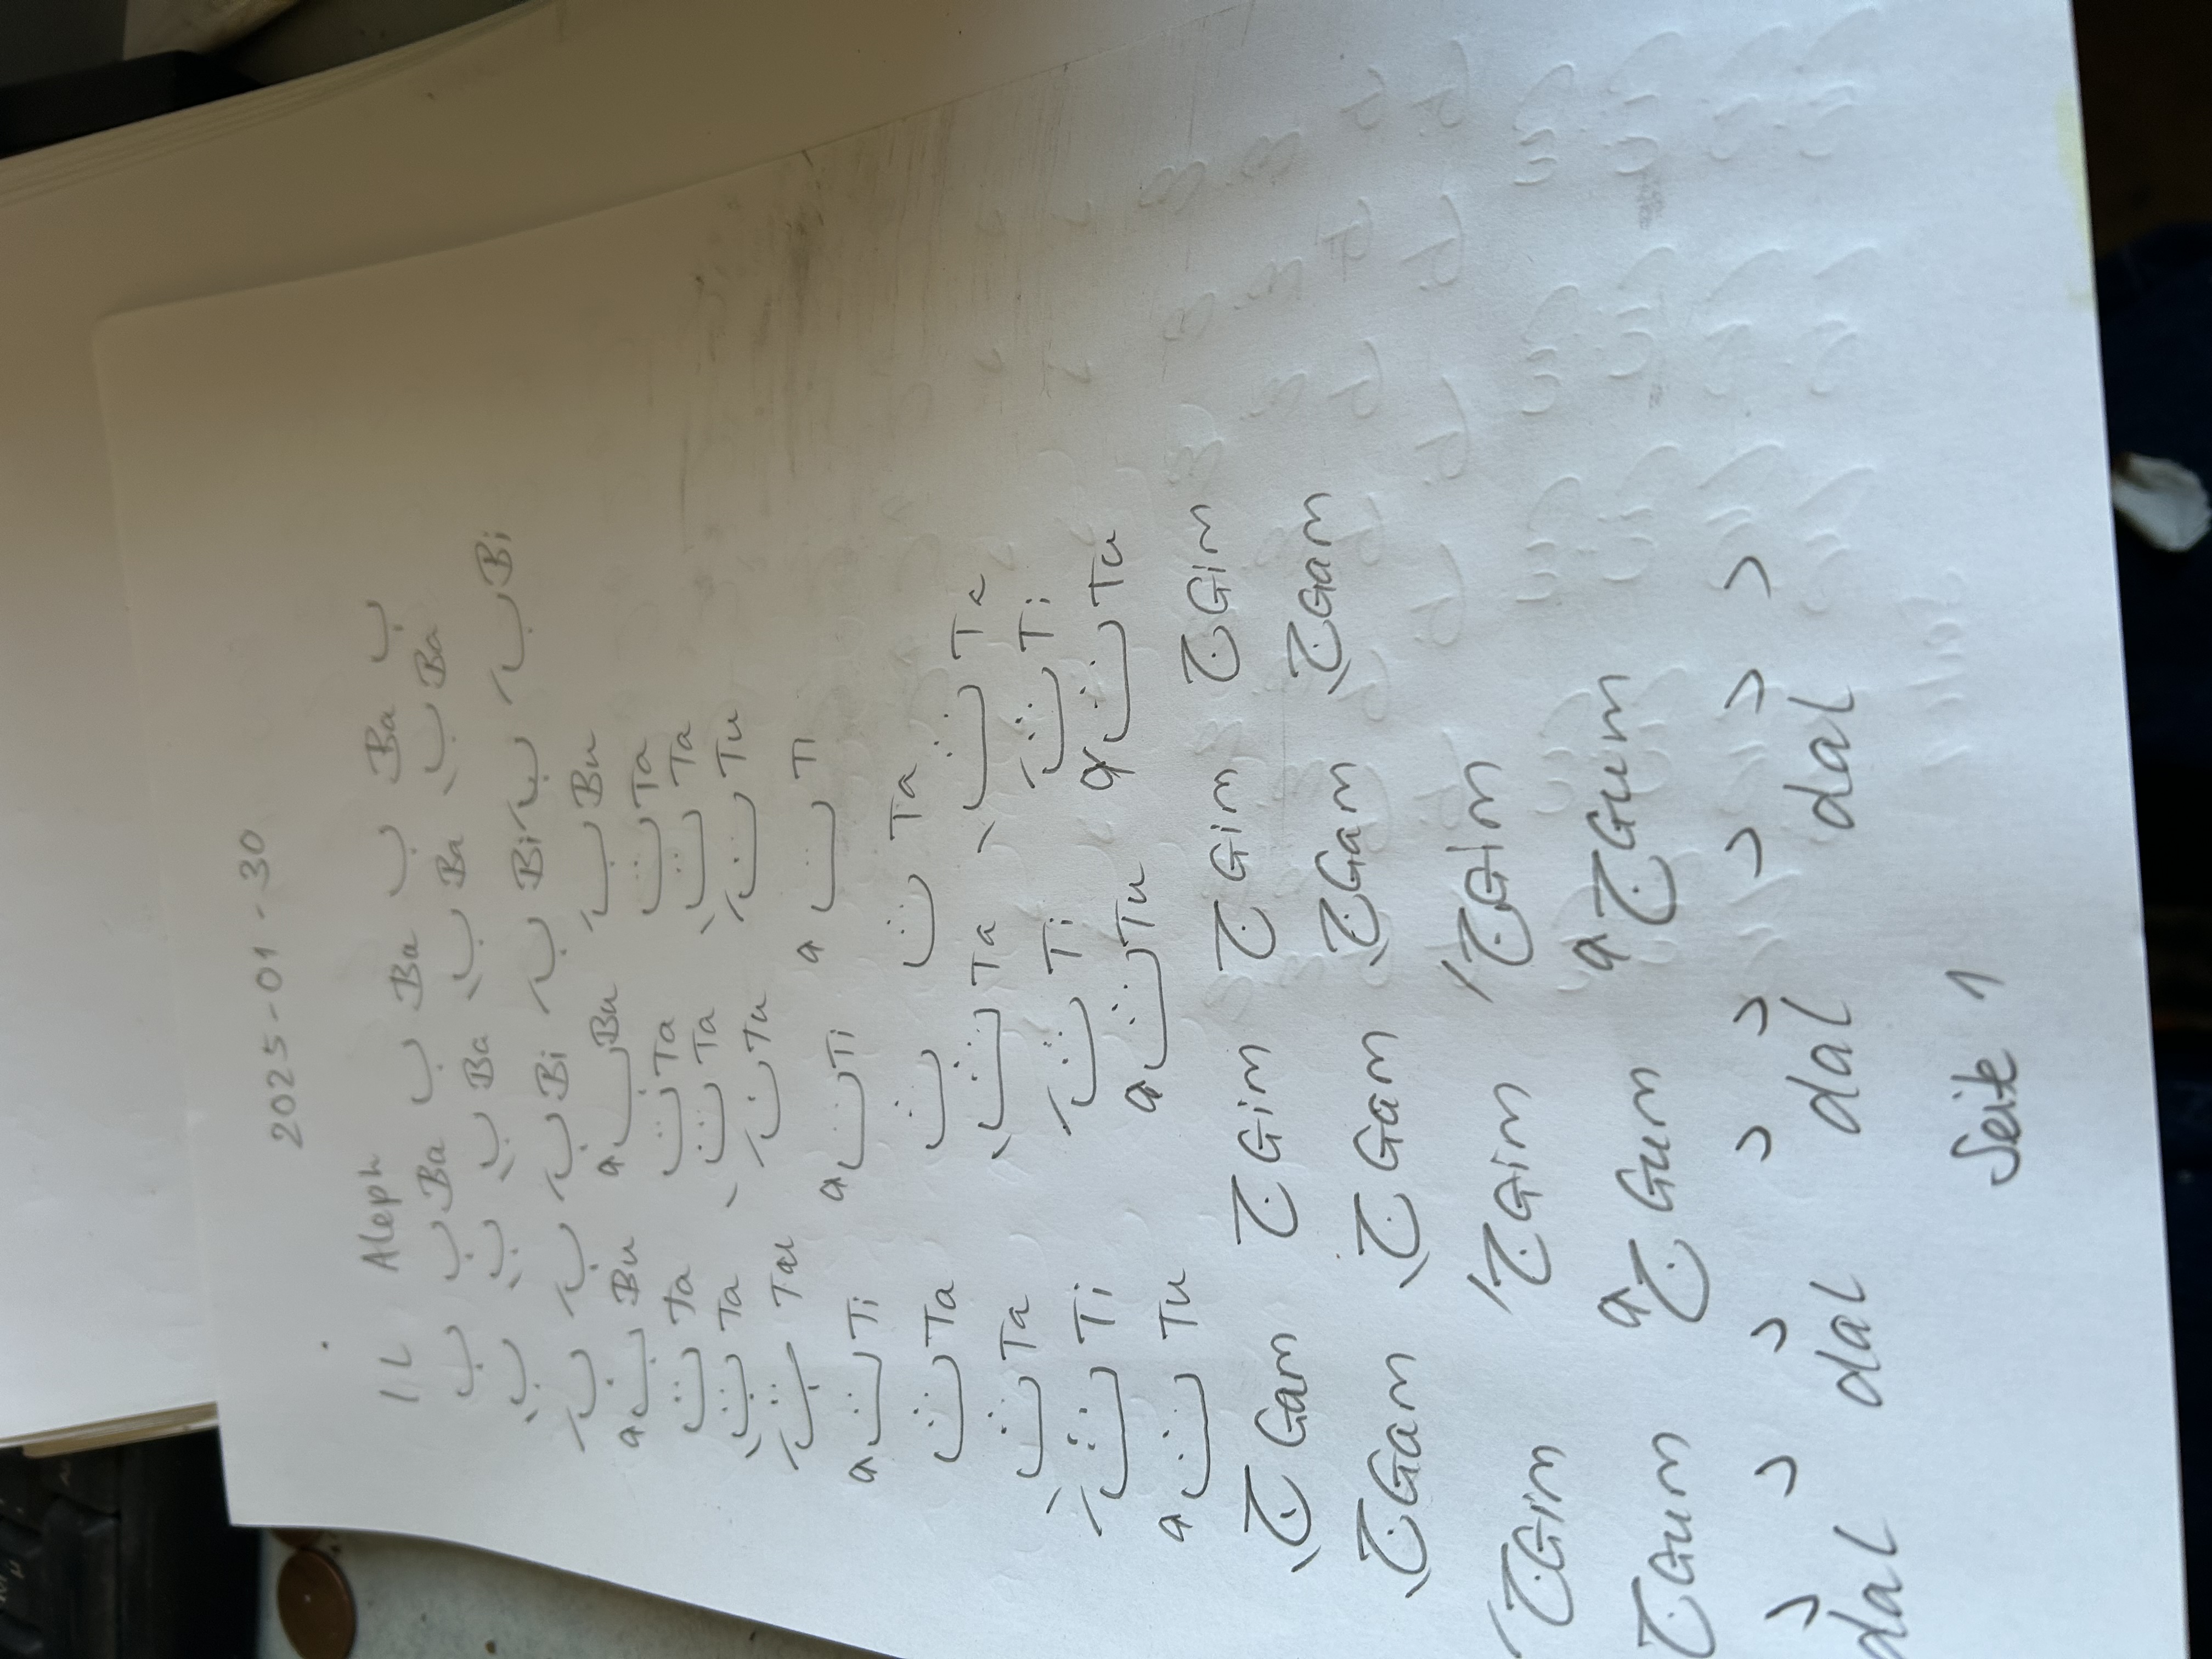 2025-01-30
ا ل Aleph
ب ب Ba ب Ba ب Ba ب
ب ب ب Ba ب Ba ب Ba
ب ب ب Bi ب Bi ب ب Bi
ب Bu ب Bu ب Bu
ت Ta ت Ta ت Ta
ت Ta ت Ta ت Ta
Tau ت Tu ت Tu
ت Ti ت Ti ت Ti
ت Ta ت ت Ta
ث Ta ث Ta ث Ta
ث Ti ث Ti ث Ti
ث Tu ث Tu ث Tu
ج Gam ج Gim ج Gim ج Gim
ج Gam ج Gam ج Gam ج Gam
ج Gim ج Gim ج Gim
ج Gum ج Gum ج Gum
د د د د د د د د
dal dal dal dal
Seite 1